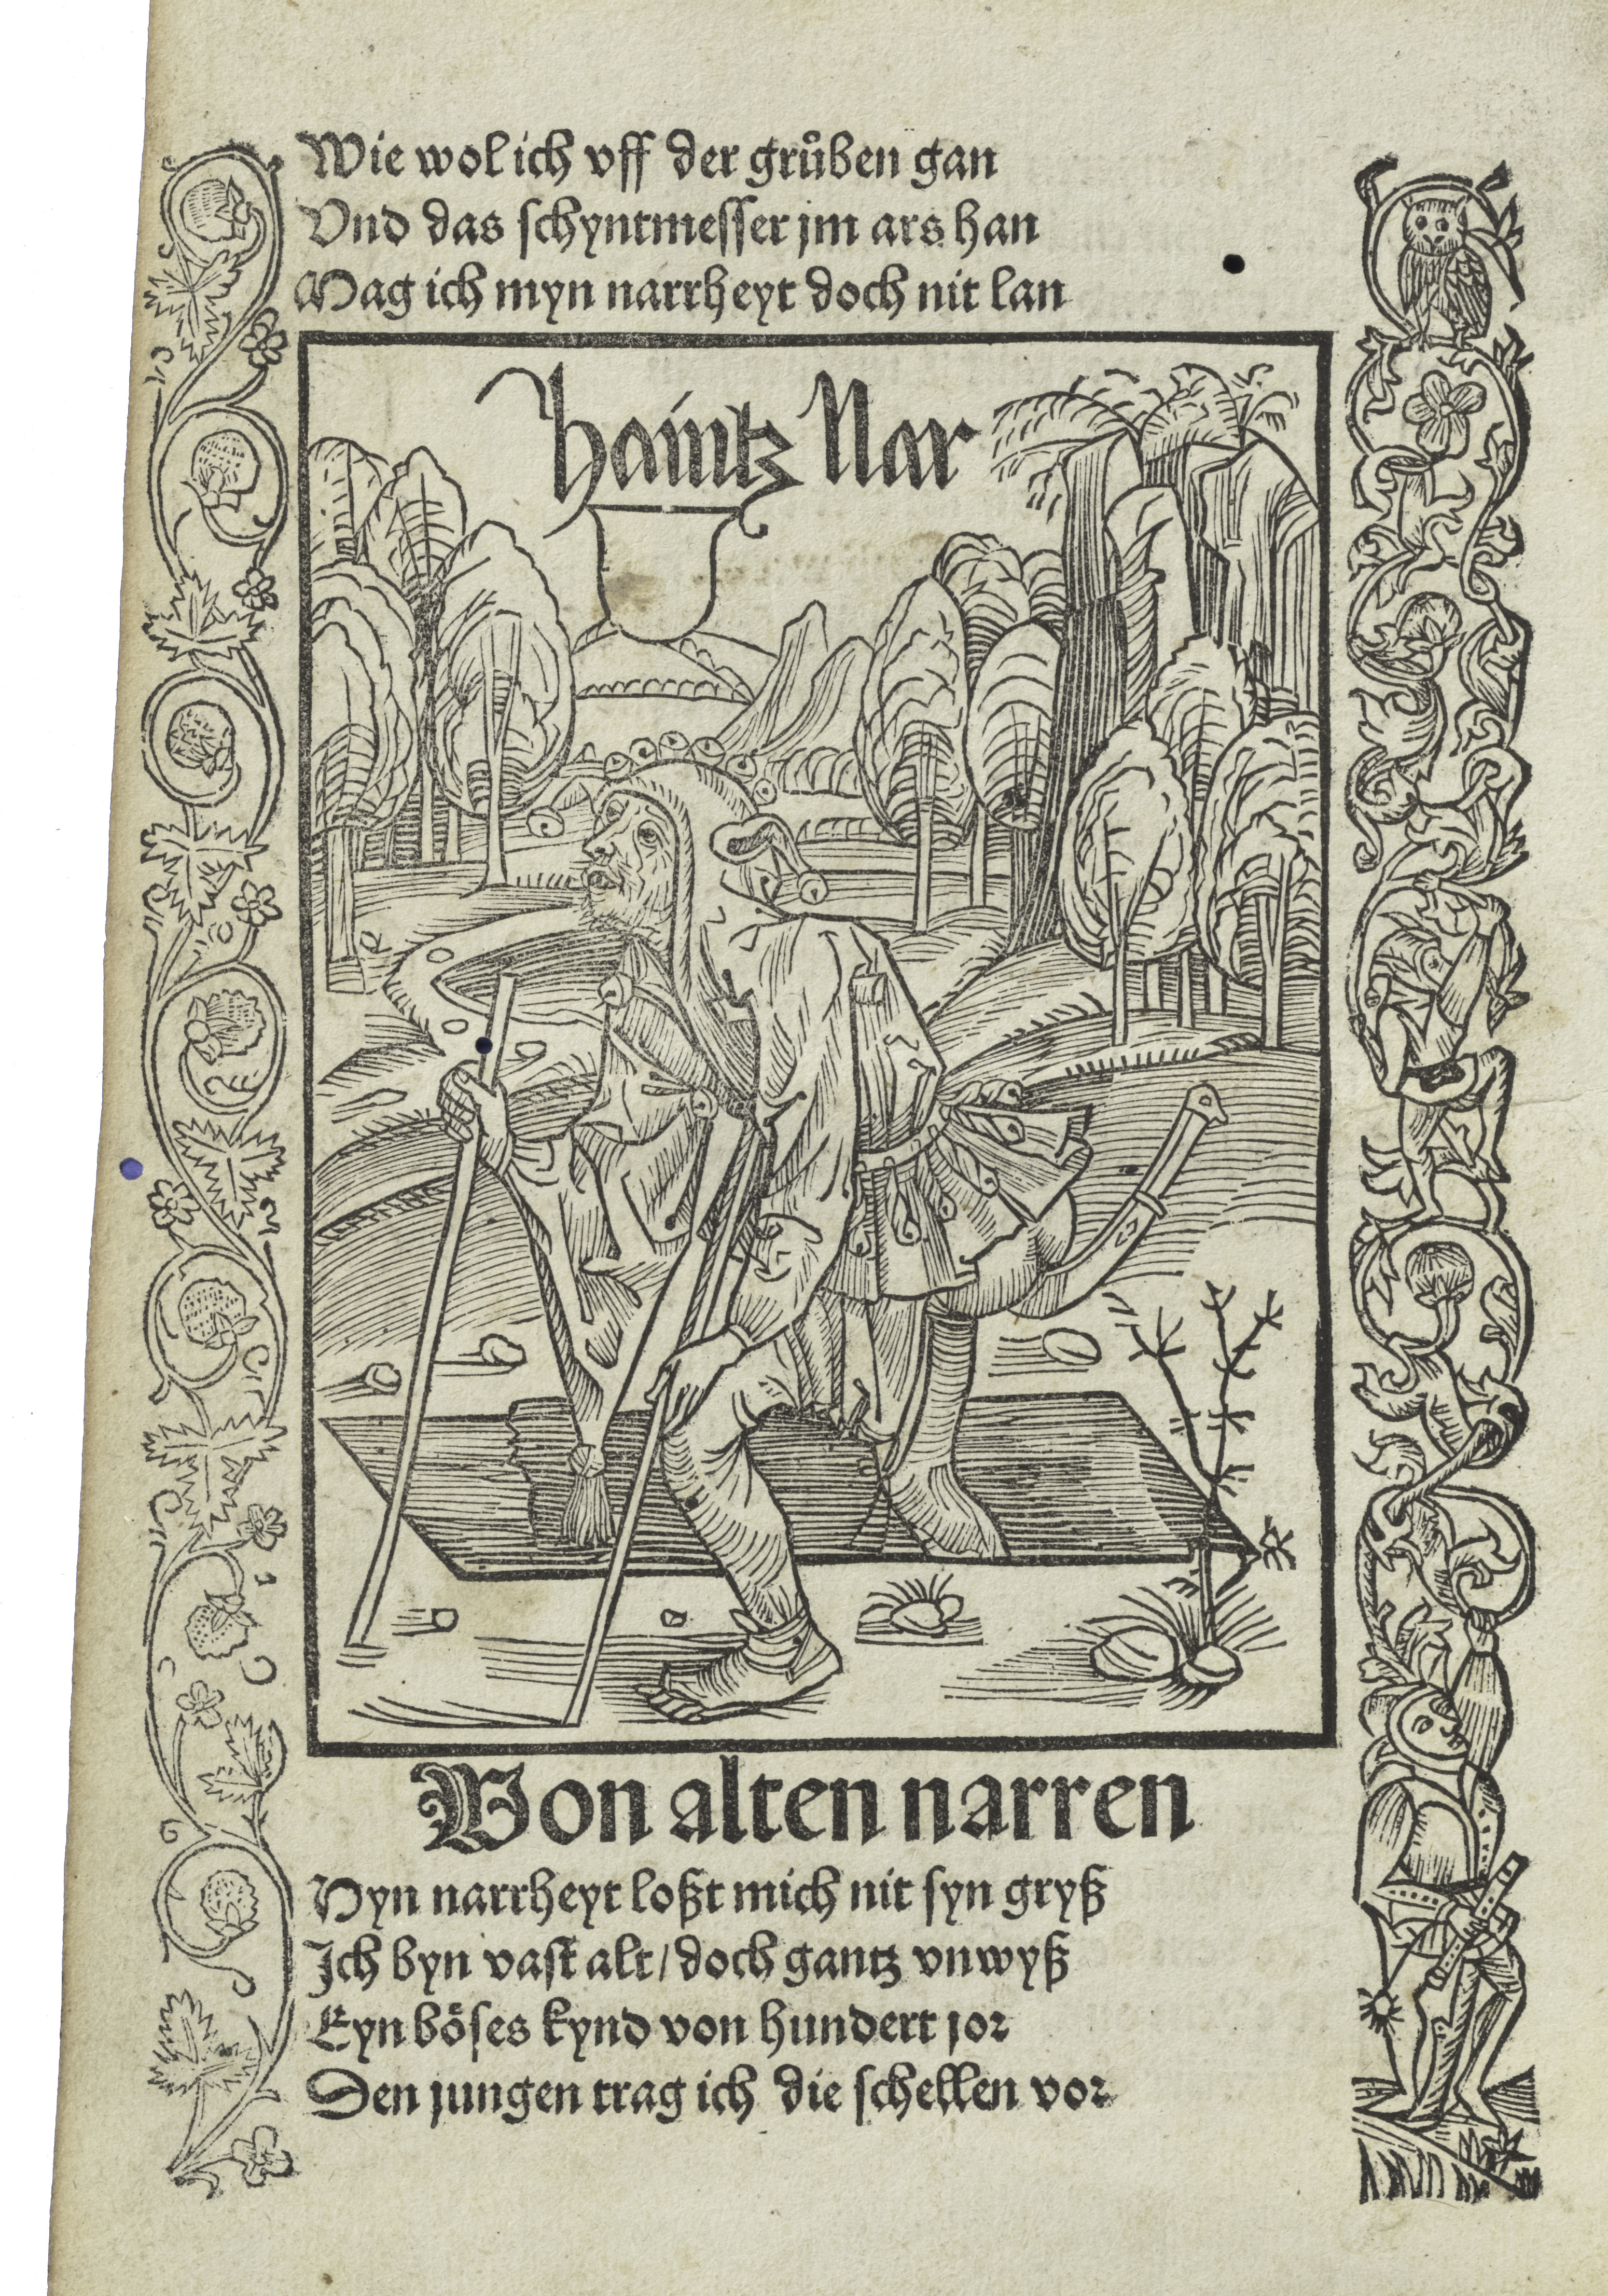 Wie wol ich vff der grůben gan
Vnd das schyntmesser jm ars han
Mag ich myn narrheyt doch nit lan
haintz Nar
Von alten narren
Myn narrheyt loßt mich nit syn gryß
Ich byn vast alt / doch gantz vnwyß
Eyn böses kynd von hundert jor
Den jungen trag ich die schellen vor